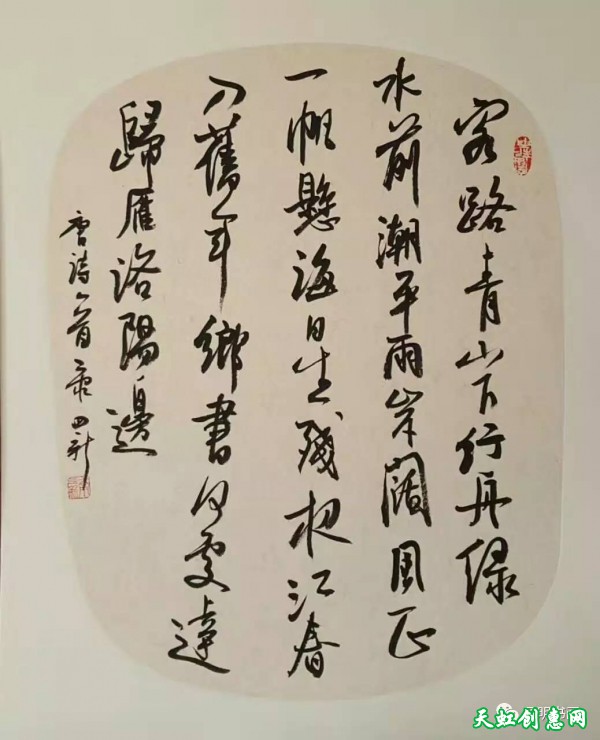 客路青山下行舟綠
水前潮平兩岸闊風正
一帆懸海日生殘夜江春
入舊年鄉書何處達
歸雁洛陽邊
唐詩一首
天虹创惠网